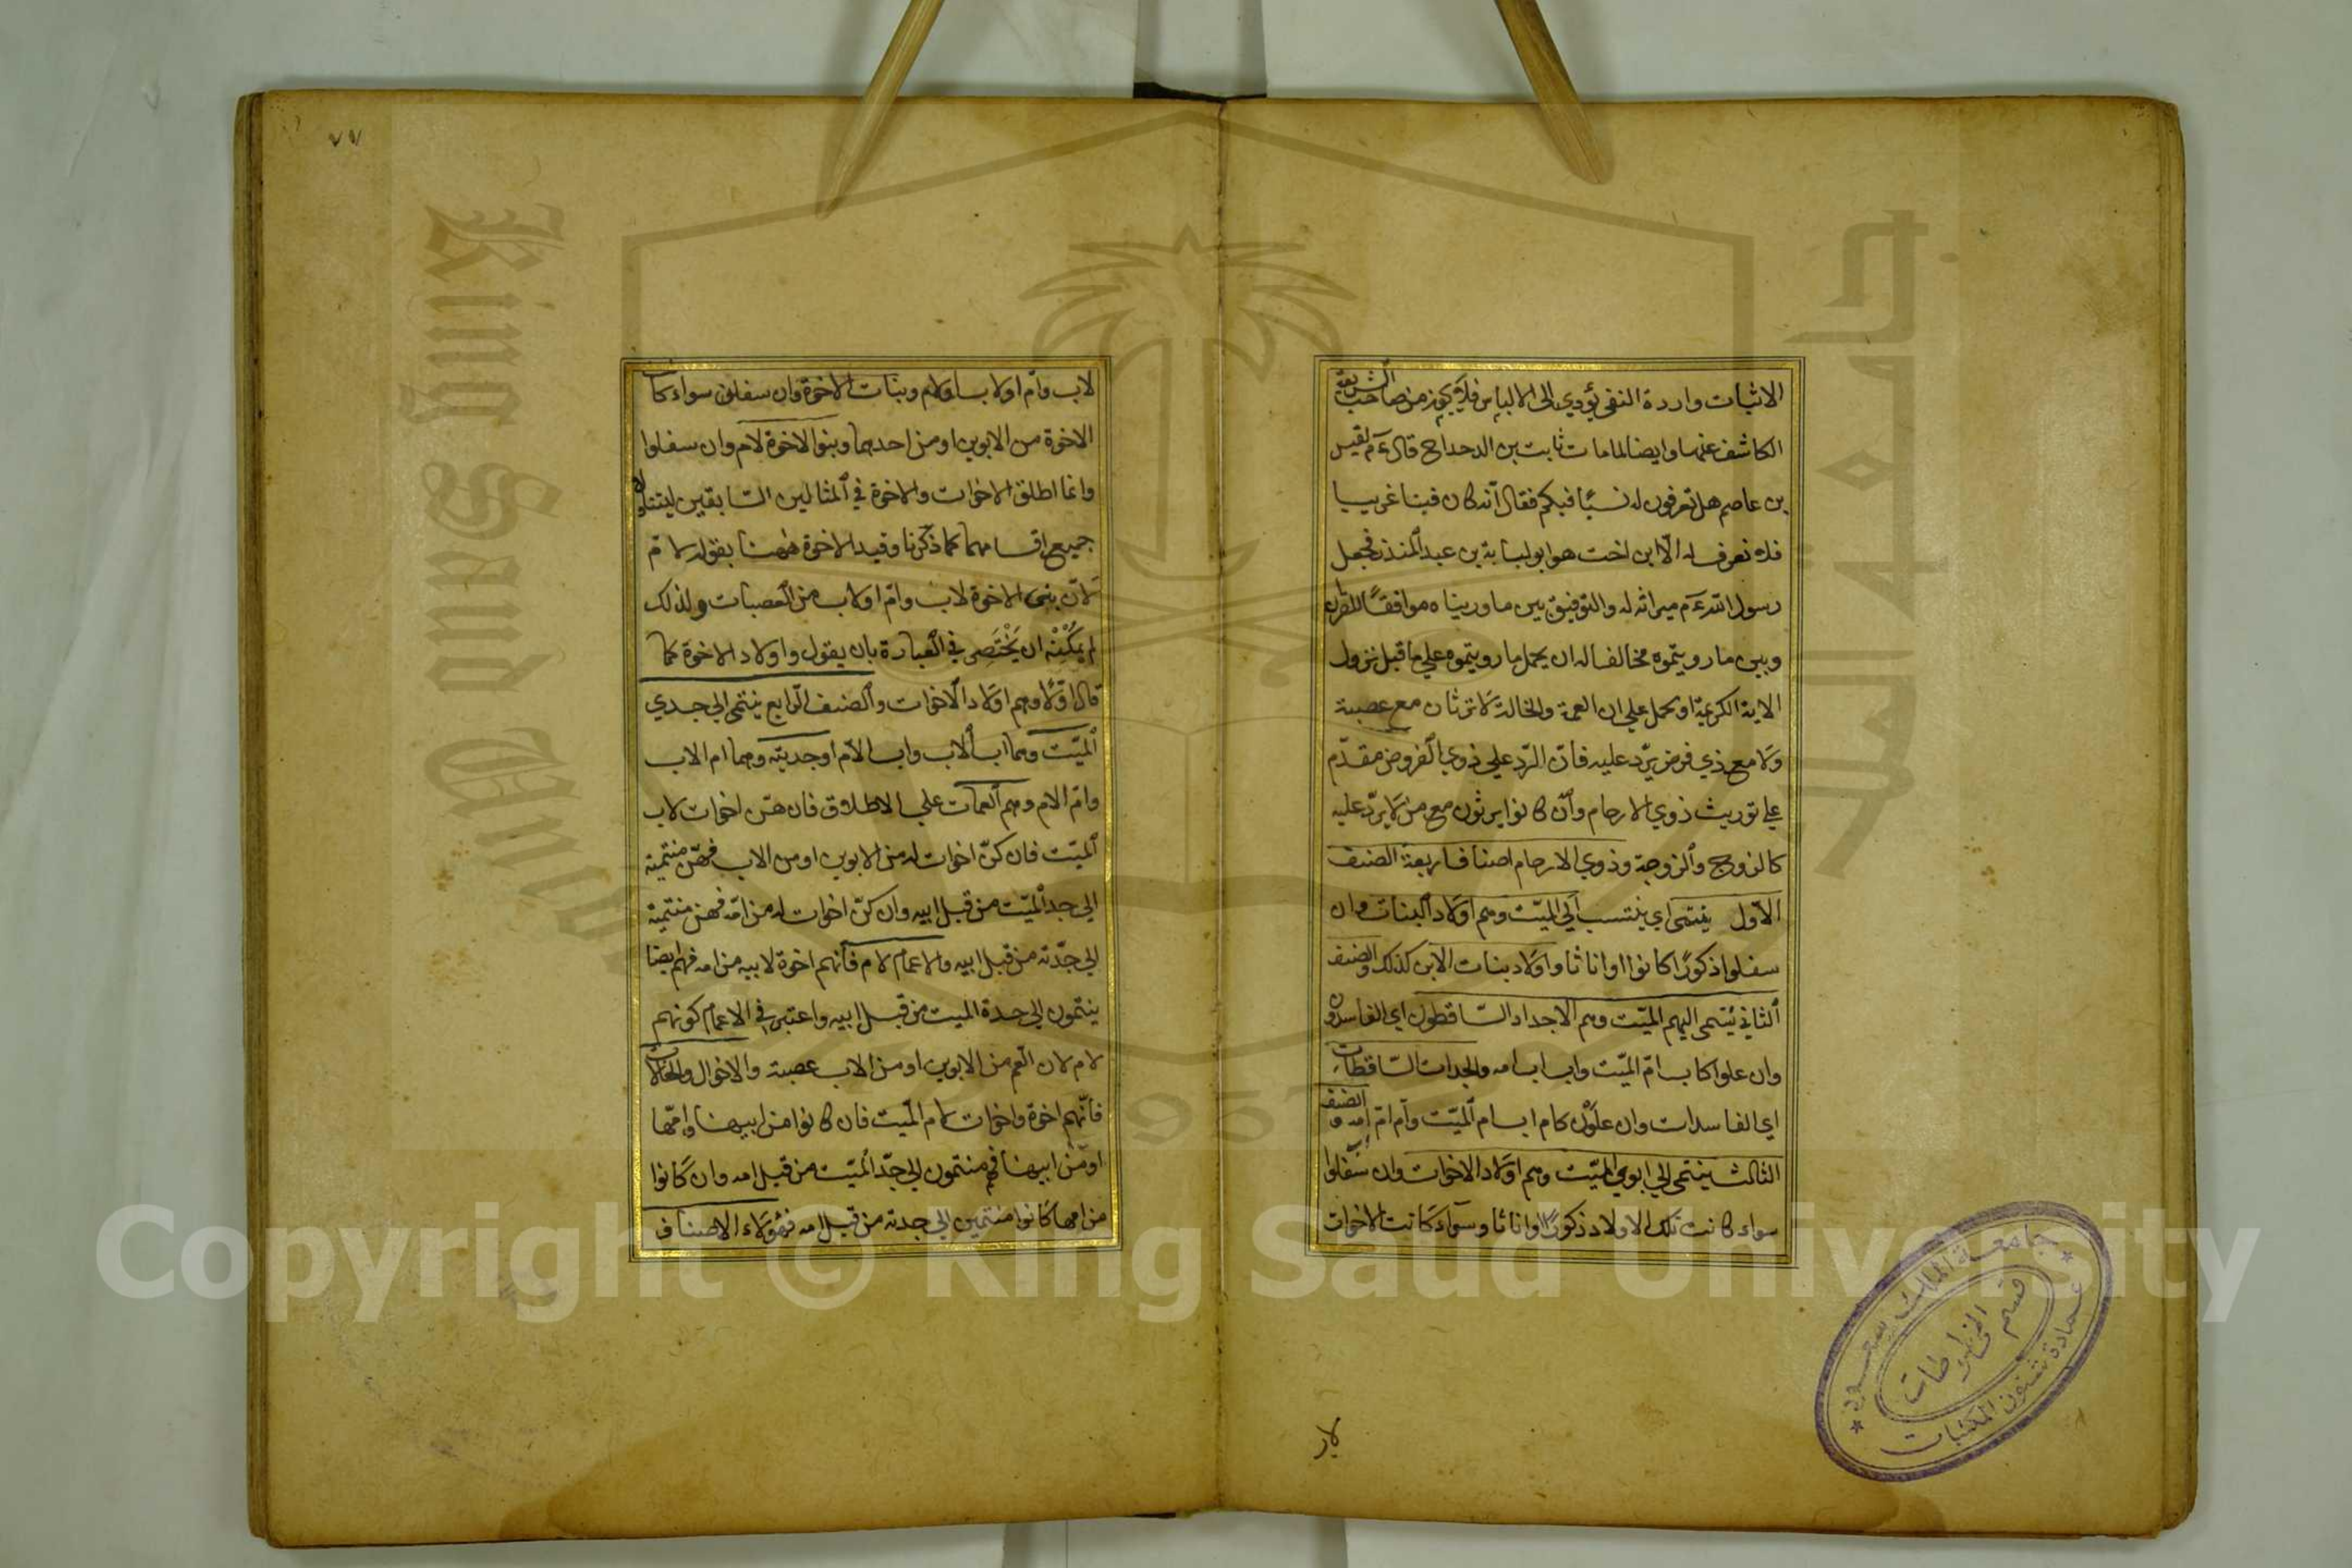 الاثبات وارردة النفي يؤدي الى الالباس فلا يجوز من صاحب الشريعة
الكاشف عنها وايضا لما مات ثابت بن الدحداح قال ءم لقيس
بن عاصم هل تعرفون له نسبًا فيكم فقال انّه كان فينا غريبا
فلا نعرف له الّا ابن اخت هو ابو لبابة بن عبد المنذر فجعل
رسول الله ءم ميراثه له والتوفيق بين ما رويناه موافقًا للقران
وبين ما رويتموه مخالفا له ان يحمل ما رويتموه على ما قبل نزول
الاية الكريمة او يحمل على ان العمة والخالة لا ترثان مع عصبة
ولا مع ذي فرض يرّد عليه فانّ الرّد على ذوي الفروض مقدّم
على توريث ذوي الارحام وان كانوا يرثون مع من لا يردّ عليه
كالزوج والزوجة وذوي الارحام اصناف اربعة الصنف
الاول ينتمى اي ينتسب الى الميّت وهم اولاد البنات وان
سفلوا ذكورًا كانوا او اناثا واولاد بنات الابن كذلك والصنف
الثاني ينتمى اليهم الميّت وهم الاجداد السّاقطون اي الفاسدون
وان علوا كاب امّ الميّت واب اب امه والجدات السّاقطات
اي الفاسدات وان علون كام اب ام الميّت وام ام امه والصنف
الثالث ينتمى الى ابوي الميّت وهم اولاد الاخوات وان سفلوا
سواء كانت تلك الاولاد ذكورًا او اناثا وسواء كانت الاخوات
لاب
٧٧
لاب وام او لاب او لام وبنات الاخوة وان سفلن سواء كان
الاخوة من الابوين او من احدهما وبنو الاخوة لام وان سفلوا
وانما اطلق الاخوات والاخوة في المثالين السّابقين ليتناولا
جميع اقسامهما كما ذكرنا وقيد الاخوة ههنا بقوله لام
لانّ بنى الاخوة لاب وام او لاب من العصبات ولذلك
لم يمكنه ان يختصر في العبارة بان يقول واولاد الاخوة كما
قال اولا وهم اولاد الاخوات والصنف الرّابع ينتمى الى جدي
الميّت وهما اب الاب واب الام او جدتيه وهما ام الاب
وامّ الام وهم العمات على الاطلاق فان هنّ اخوات لاب
الميّت فان كنّ اخوات له من الابوين او من الاب فهنّ منتمية
الى جد الميّت من قبل ابيه وان كنّ اخوات له من امّه فهن منتمية
الى جدّته من قبل ابيه والاعمام لام فانّهم اخوة لابيه من امه فهم ايضا
ينتمون الى جدة الميت من قبل ابيه واعتبر في الاعمام كونهم
لام لان العم من الابوين او من الاب عصبة والاخوال والخالات
فانّهم اخوة واخوات لام الميّت فان كانوا من ابيها وامّها
او من ابيها فهم منتمون الى جدّ الميّت من قبل امه وان كانوا
من امها كانوا منتمين الى جدته من قبل امه فهؤلاء الاصناف
جامعة الملك سعود
عمادة شئون المكتبات
قسم المخطوطات
King Saud Univ
Copyright © King Saud University